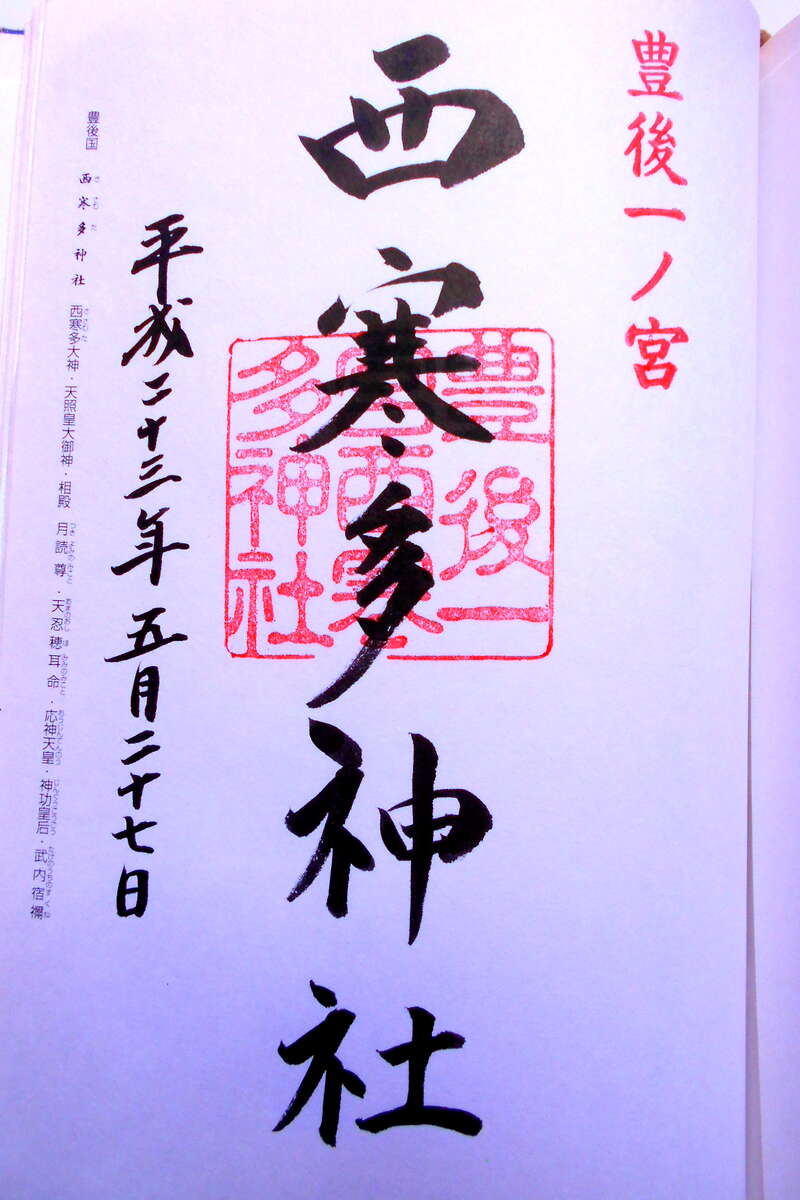 豊後一ノ宮
西寒多神社
豊後一
宮西寒
多神社
平成二十三年五月二十七日
豊後国 西寒多神社 西寒多大神・天照皇大御神・相殿 月読尊・天忍穂耳命・応神天皇・神功皇后・武内宿禰